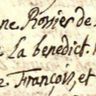 ne Rosier de
la benedict.
e François, et